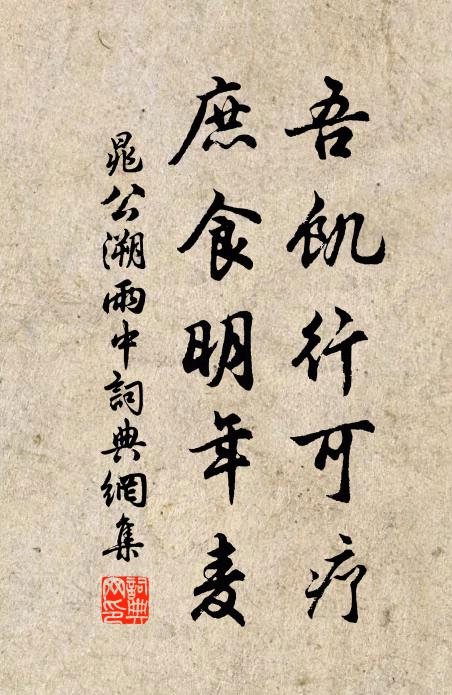 吾飢行可疗
庶食明年麦
晁公溯雨中詞典網集
詞典网印